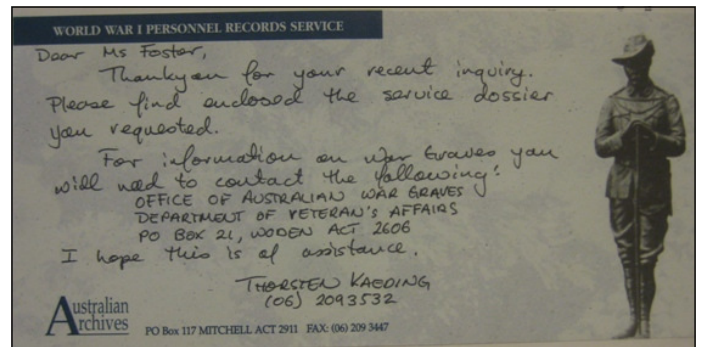 WORLD WAR I PERSONNEL RECORDS SERVICE
Dear Ms Foster,
Thankyou for your recent inquiry.
Please find enclosed the service dossier
you requested.
For information on War Graves you
will need to contact the following:
OFFICE OF AUSTRALIAN WAR GRAVES
DEPARTMENT OF VETERAN'S AFFAIRS
PO BOX 21, WODEN ACT 2606
I hope this is of assistance.
THORSTEN KAEDING
(06) 2093532
Australian
Archives
PO Box 117 MITCHELL ACT 2911 FAX: (06) 209 3447